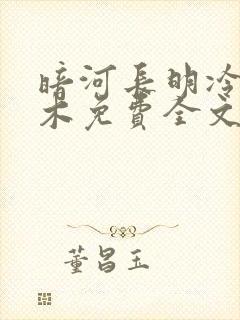 暗河长明冷
木免費全文
董昌玉